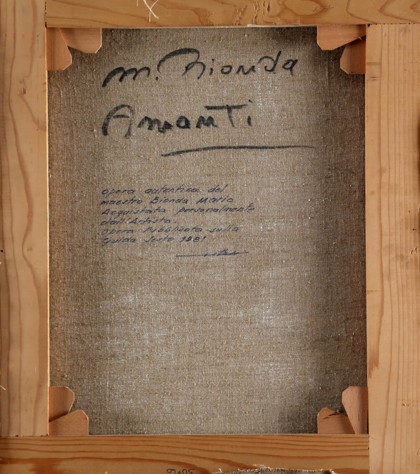 M. Bionda
Amanti
Opera autentica del
maestro Bionda Mario
Acquistata personalmente
dall'Artista.
Opera Pubblicata sulla
Guida Jorio 1981